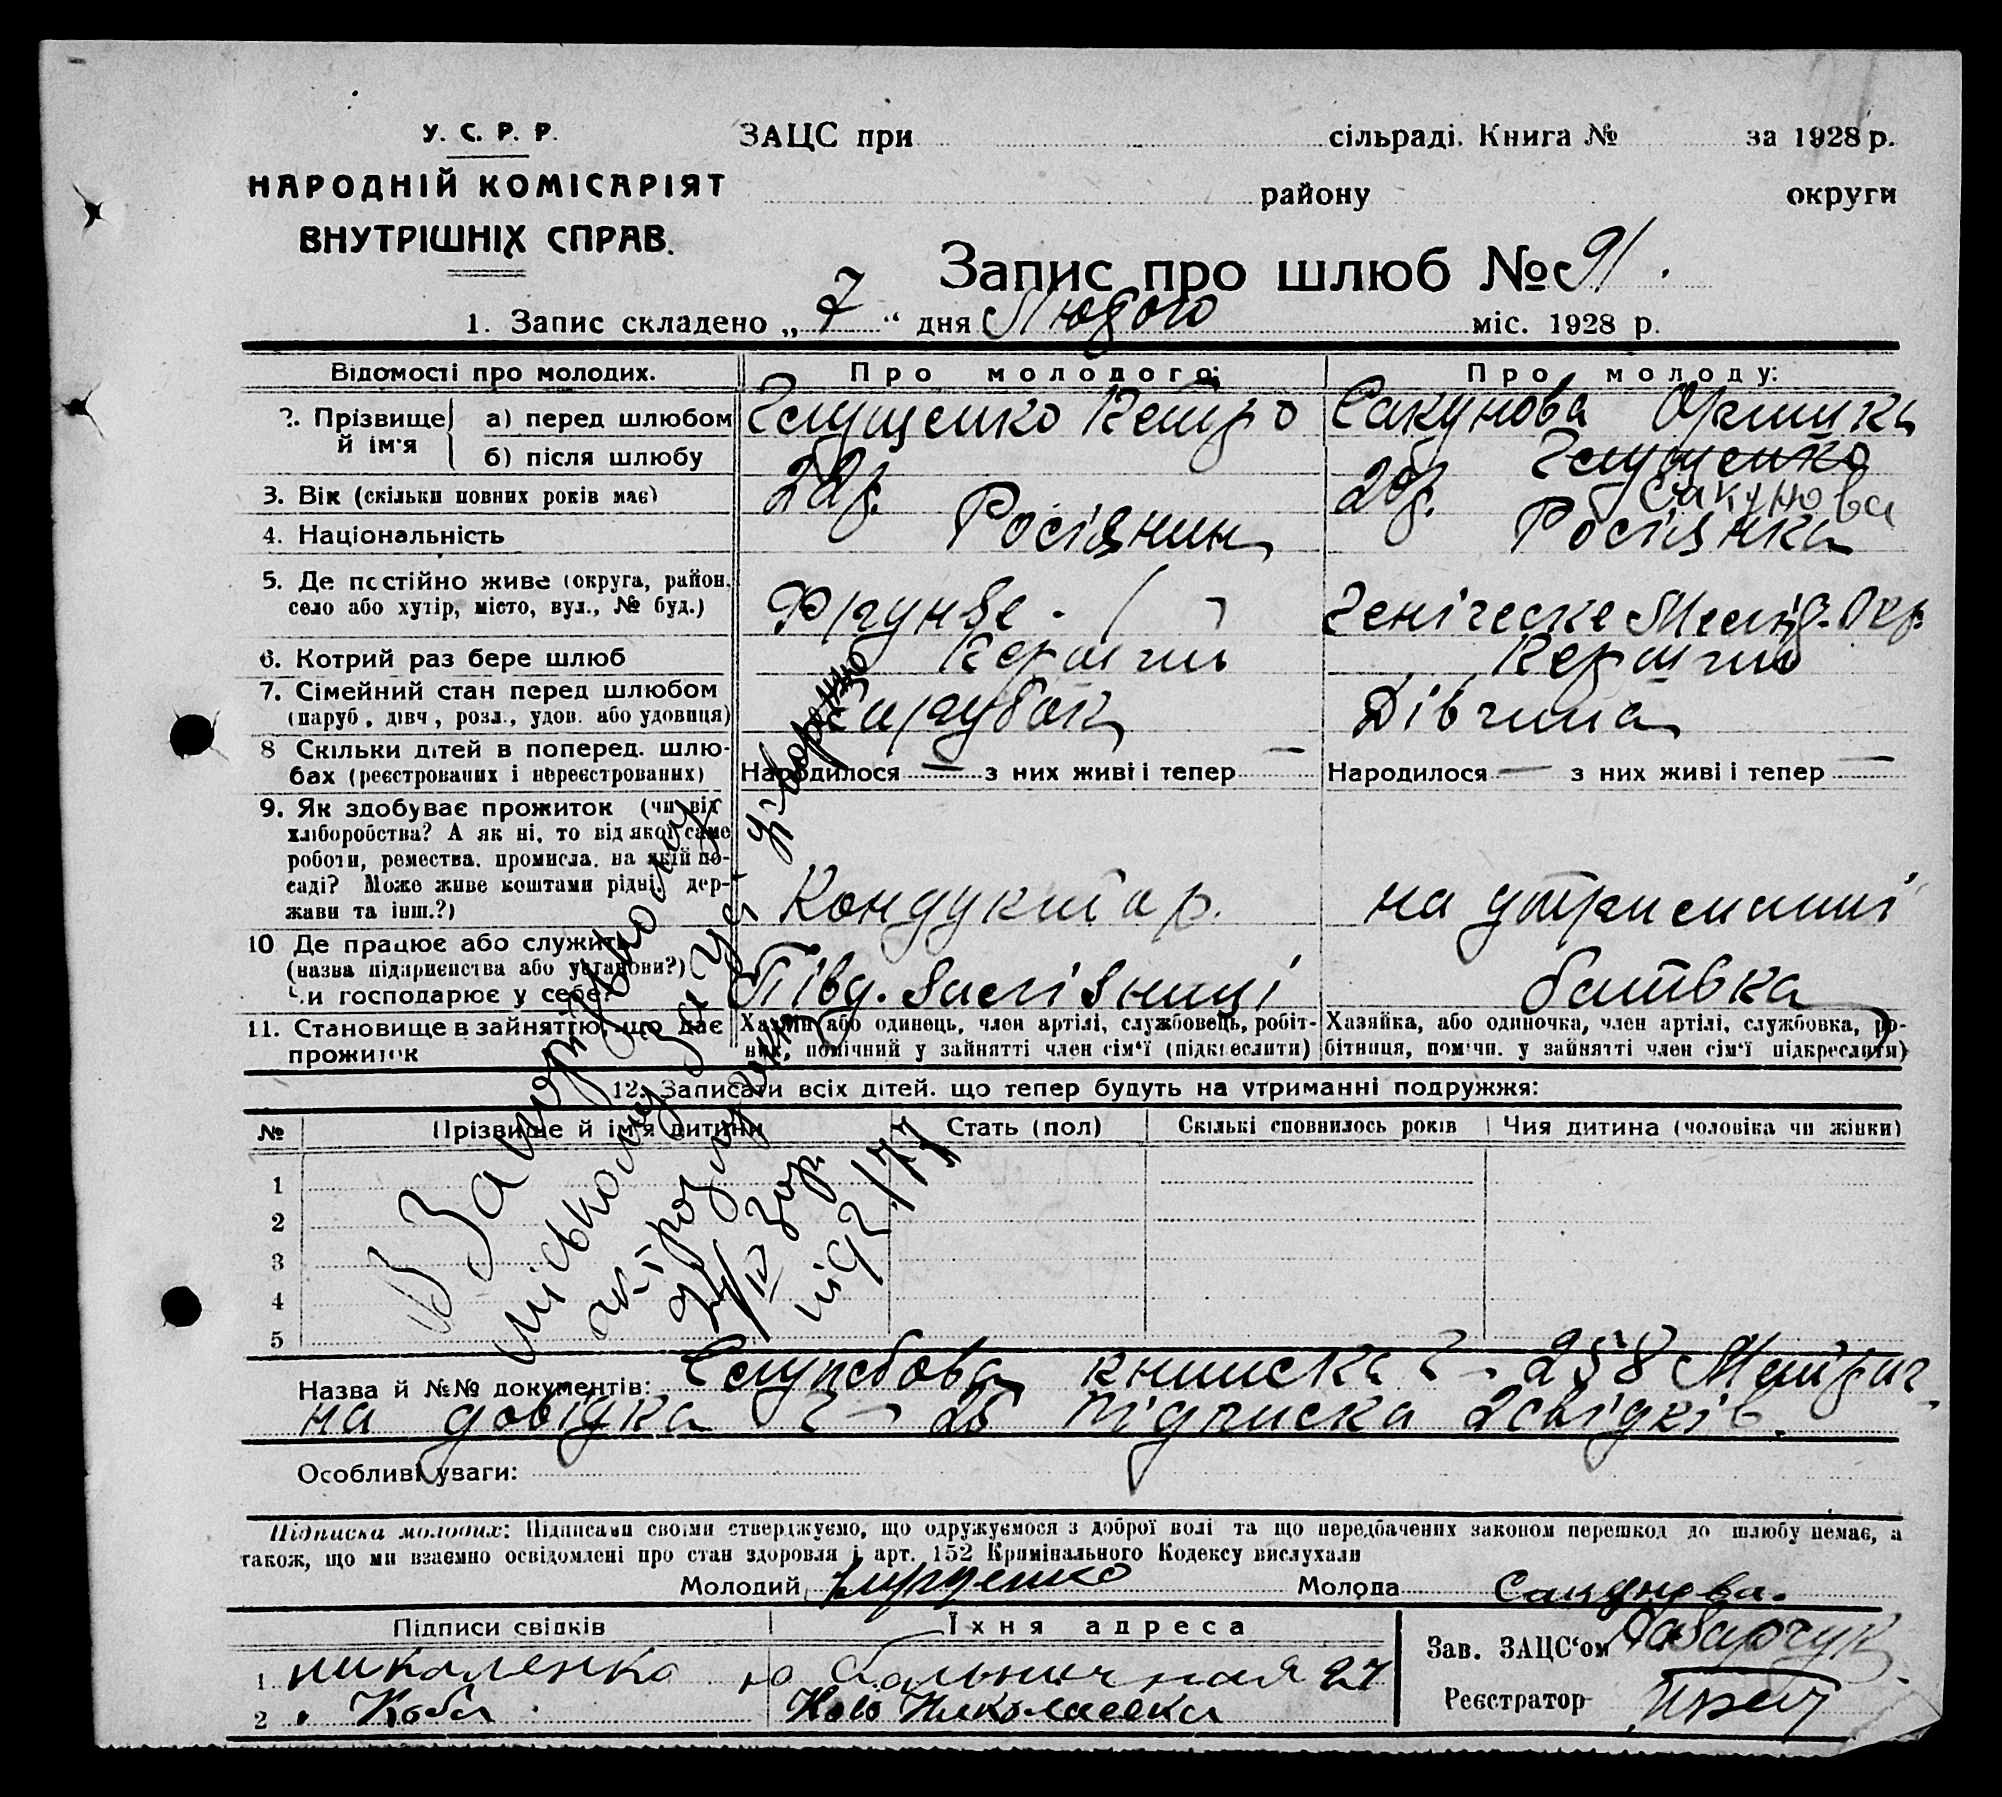 У. С. Р. Р.
НАРОДНІЙ КОМІСАРІЯТ
ВНУТРІШНІХ СПРАВ.
ЗАЦС при сільраді. Книга № за 1928 р.
району округи
Запис про шлюб № 91.
1. Запис складено „7“ дня Лютого міс. 1928 р.
Відомості про молодих. Про молодого: Про молоду:
2. Прізвище й ім'я
а) перед шлюбом Глущенко Петро Сакунова Оришка
б) після шлюбу Глущенко Сакунова
3. Вік (скільки повних років має) 22 р. 20 р.
4. Національність Росіянин Росіянка
5. Де постійно живе (округа, район, село або хутір, місто, вул., № буд.) Фрунзе Генічеське Меліт. Окр.
6. Котрий раз бере шлюб Перший Перший
7. Сімейний стан перед шлюбом (паруб., дівч., розл., удов. або удовиця) Парубок Дівчина
8 Скільки дітей в поперед. шлюбах (реєстрованих і нереєстрованих) Народилося — з них живі і тепер — Народилося — з них живі і тепер —
9. Як здобуває прожиток (чи від
хліборобства? А як ні, то від якої саме
роботи, ремества, промисла, на якій по-
саді? Може живе коштами рідні, дер-
жави та інш.?) Кондуктор. на утриманні
10 Де працює або служить
(назва підприємства або установи?)
Чи господарює у себе? Півд. Залізниці батька
11. Становище в зайнятю, що дає прожиток
Хазяїн або одинець, член артілі, службовець, робіт-
ник, помічний у зайнятті член сім'ї (підкреслити)
Хазяйка, або одиночка, член артілі, службовка, ро-
бітниця, помічн. у зайнятті член сім'ї підкреслити)
12. Записати всіх дітей, що тепер будуть на утриманні подружжя:
№ Прізвище й ім'я дитини Стать (пол) Скількі сповнилось років Чия дитина (чоловіка чи жінки)
1
2
3
4
5
В Запорізькому
міському Загсі
акт розлучення
під 2/77
Назва й №№ документів: Службова книжка № 258 Метрич
на довідка № 25 підписка 2 свідків.
Особливі уваги:
Підписка молодих: Підписами своїми стверджуємо, що одружуємося з доброї волі та що передбачених законом перешкод до шлюбу немає, а
також, що ми взаємно освідомлені про стан здоровля і арт. 152 Кримінального Кодексу вислухали
Молодий Глущенко Молода Сакунова.
Підписи свідків Їхня адреса
1 николенко Больничная 27
2 Коба Ново Николаевка
Зав. ЗАЦС'ом
Реєстратор